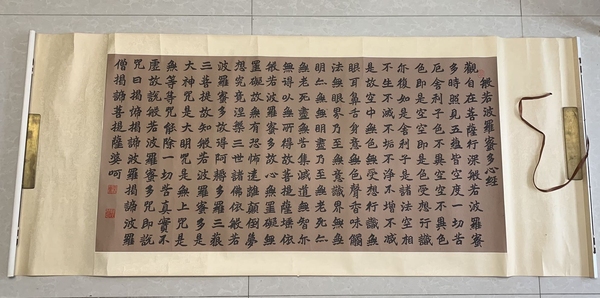 般若波羅蜜多心經
觀自在菩薩行深般若波羅蜜
多時照見五蘊皆空度一切苦
厄舍利子色不異空空不異色
色即是空空即是色受想行識
亦復如是舍利子是諸法空相
不生不滅不垢不淨不增不減
是故空中無色無受想行識無
眼耳鼻舌身意無色聲香味觸
法無眼界乃至無意識界無無
明亦無無明盡乃至無老死亦
無老死盡無苦集滅道無智亦
無得以無所得故菩提薩埵依
般若波羅蜜多故心無罣礙無
罣礙故無有恐怖遠離顛倒夢
想究竟涅槃三世諸佛依般若
波羅蜜多故得阿耨多羅三藐
三菩提故知般若波羅蜜多是
大神咒是大明咒是無上咒是
無等等咒能除一切苦真實不
虛故說般若波羅蜜多咒即說
咒曰揭諦揭諦波羅揭諦波羅
僧揭諦菩提薩婆呵